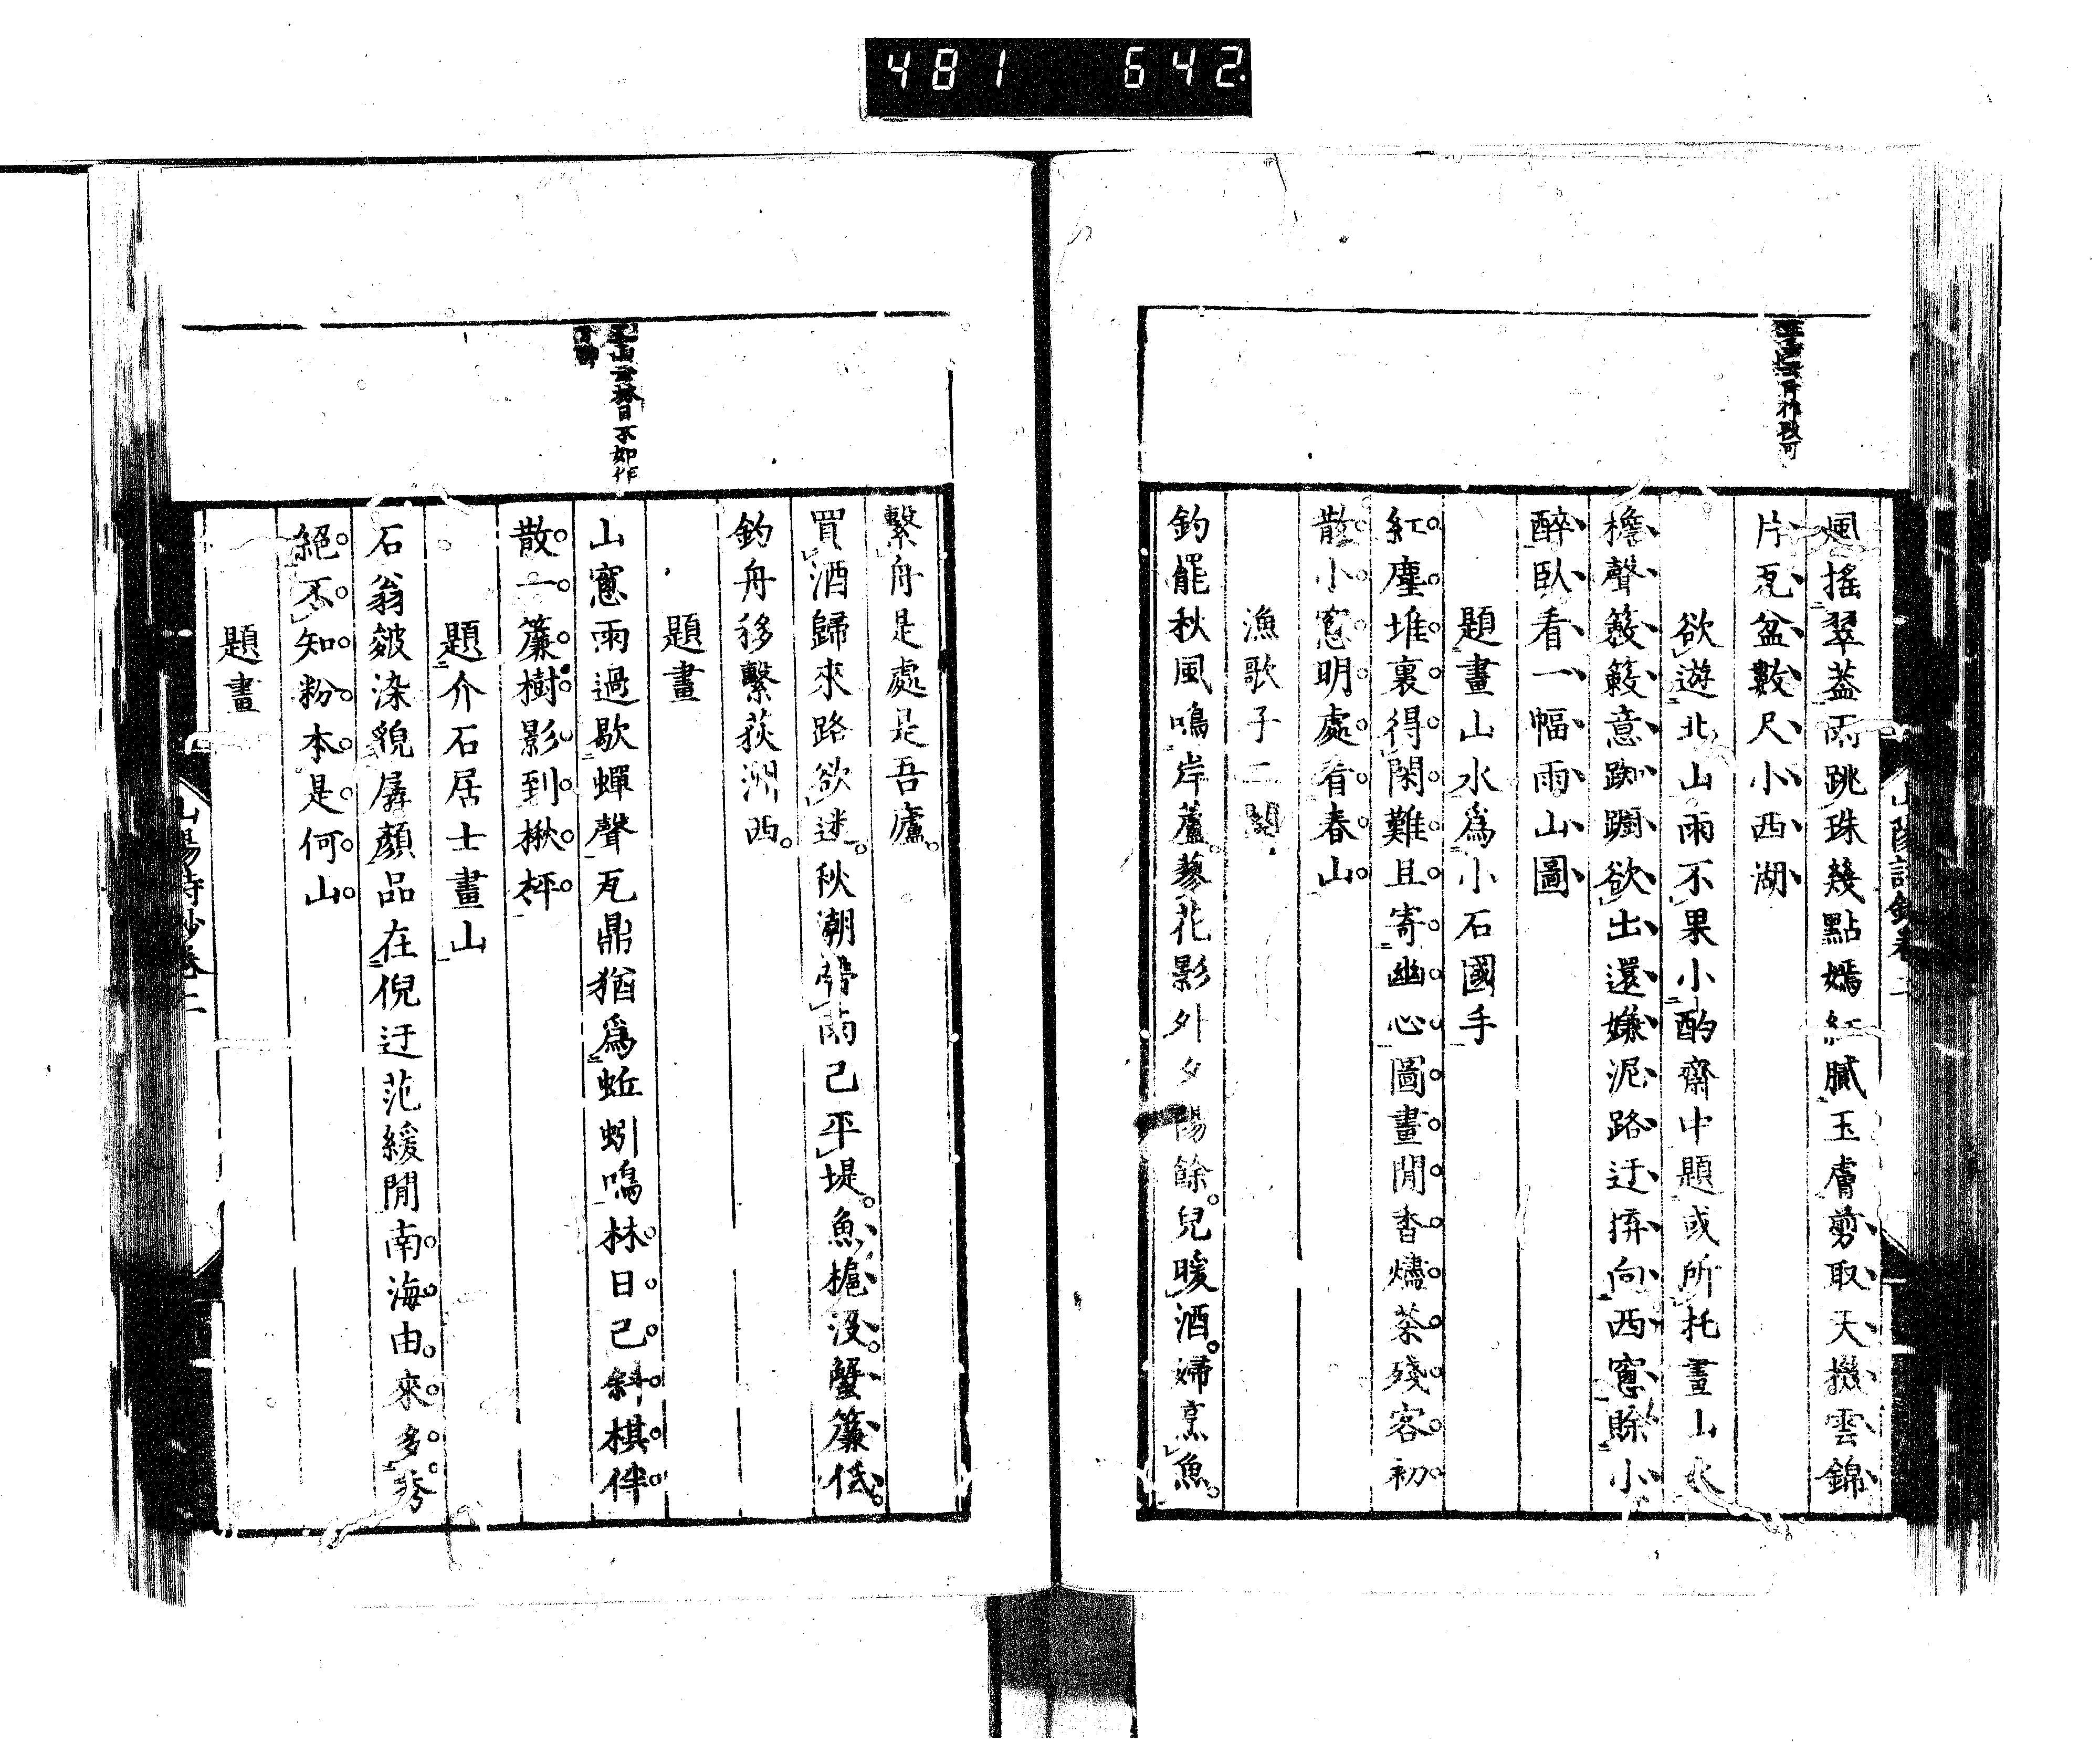 481 642
風搖翠葢雨跳珠幾點嫣紅膩玉膚剪取天機雲錦
片瓦盆數尺小西湖
欲遊北山雨不果小酌齋中題或所托畫山水
檐聲簌簌意踟躕欲出還嫌泥路迂擠向西窻賖小
醉臥看一幅雨山圖
題畫山水爲小石國手
紅塵堆裏得閑難且寄幽心圖畫閒香燼茶殘客初
散小窻明處看春山
漁歌子二闋
釣罷秋風鳴岸蘆蓼花影外夕陽餘兒暖酒婦烹魚
繫舟是處是吾廬
買酒歸來路欲迷秋潮帶雨已平堤魚槴沒蟹簾低
釣舟移繫荻洲西
題畫
山窻雨過歇蟬聲瓦鼎猶爲蚯蚓鳴林日已斜棋伴
散一簾樹影到楸枰
題介石居士畫山
石翁皴染貌孱顏品在倪迂范緩閒南海由來多秀
絕不知粉本是何山
題畫
山陽詩鈔卷二